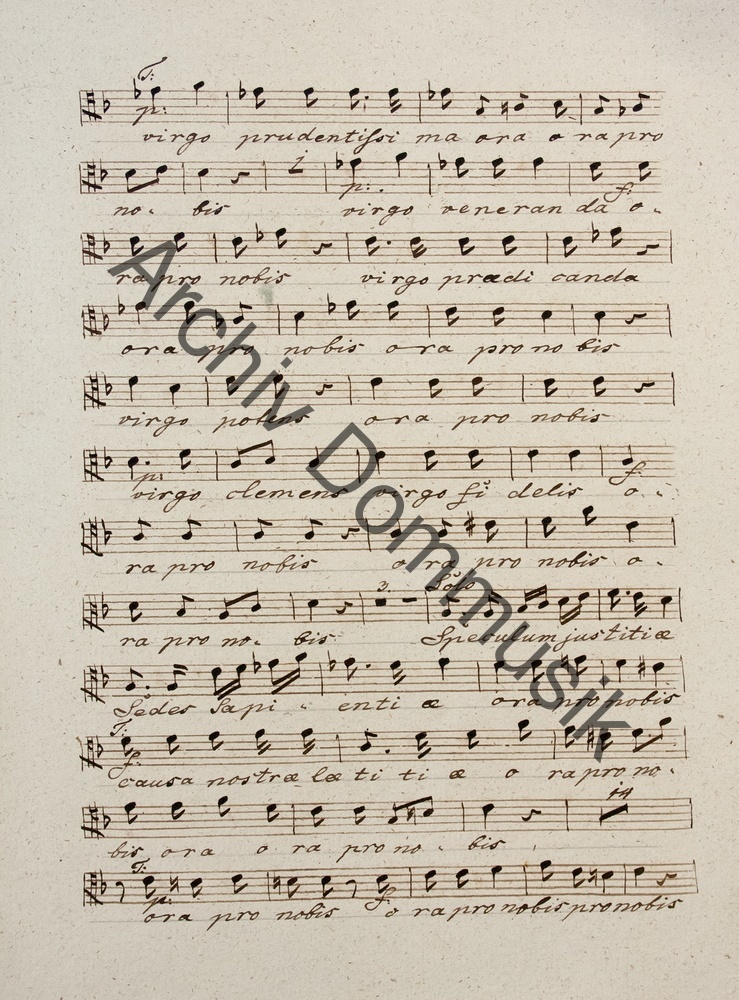 T:
p:
virgo prudentissi ma ora o ra pro
1
p:. f:
no - bis virgo veneran da o -
ra pro nobis virgo prædi canda
ora pro nobis o-ra pro no bis
virgo potens ora pro nobis
p: f:
virgo clemens virgo fi delis o -
ra pro nobis o ra pro nobis o -
3. Solo
ra pro no - bis Speculum justitiæ
Sedes Sa pi - enti æ ora pro nobis
T:
f:
causa nostræ læ ti ti æ o ra pro no -
14
bis ora o ra pro no - bis
T:
p: f:
ora pro nobis o ra pro nobis pro nobis
Archiv Dommusik